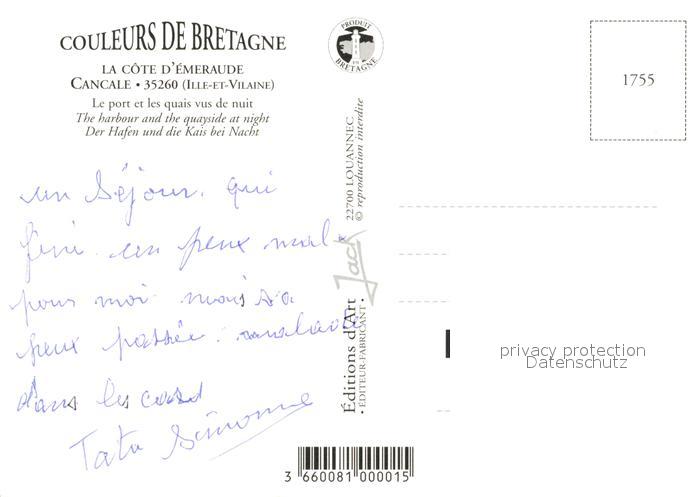 COULEURS DE BRETAGNE
LA CÔTE D'ÉMERAUDE
CANCALE • 35260 (ILLE-ET-VILAINE)
Le port et les quais vus de nuit
The harbour and the quayside at night
Der Hafen und die Kais bei Nacht
PRODUIT EN BRETAGNE
1755
un Séjour. qui
fini un peux mal
pour moi mais sa
peux passée
dans les
Tata Simonne
22700 LOUANNEC
© reproduction interdite
Jack
Editions d'Art
• ÉDITEUR-FABRICANT •
privacy protection
Datenschutz
3 660081 000015